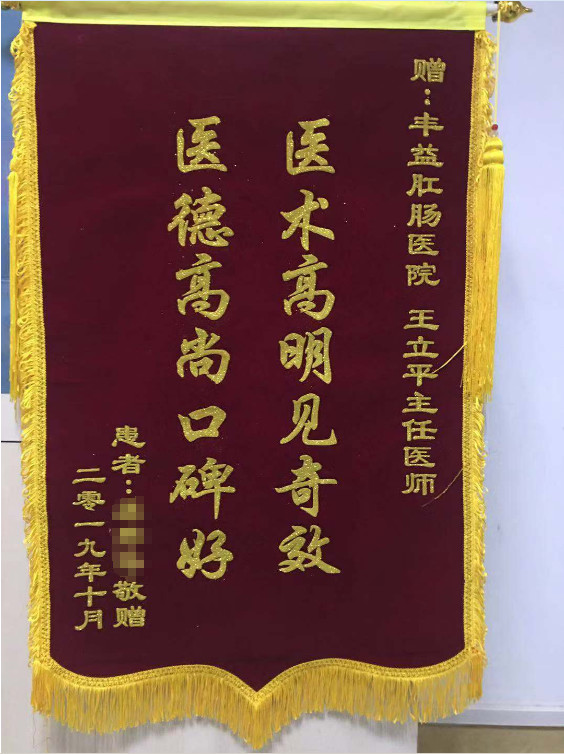 赠：丰益肛肠医院 王立平主任医师
医术高明见奇效
医德高尚口碑好
患者：敬赠
二零一九年十月